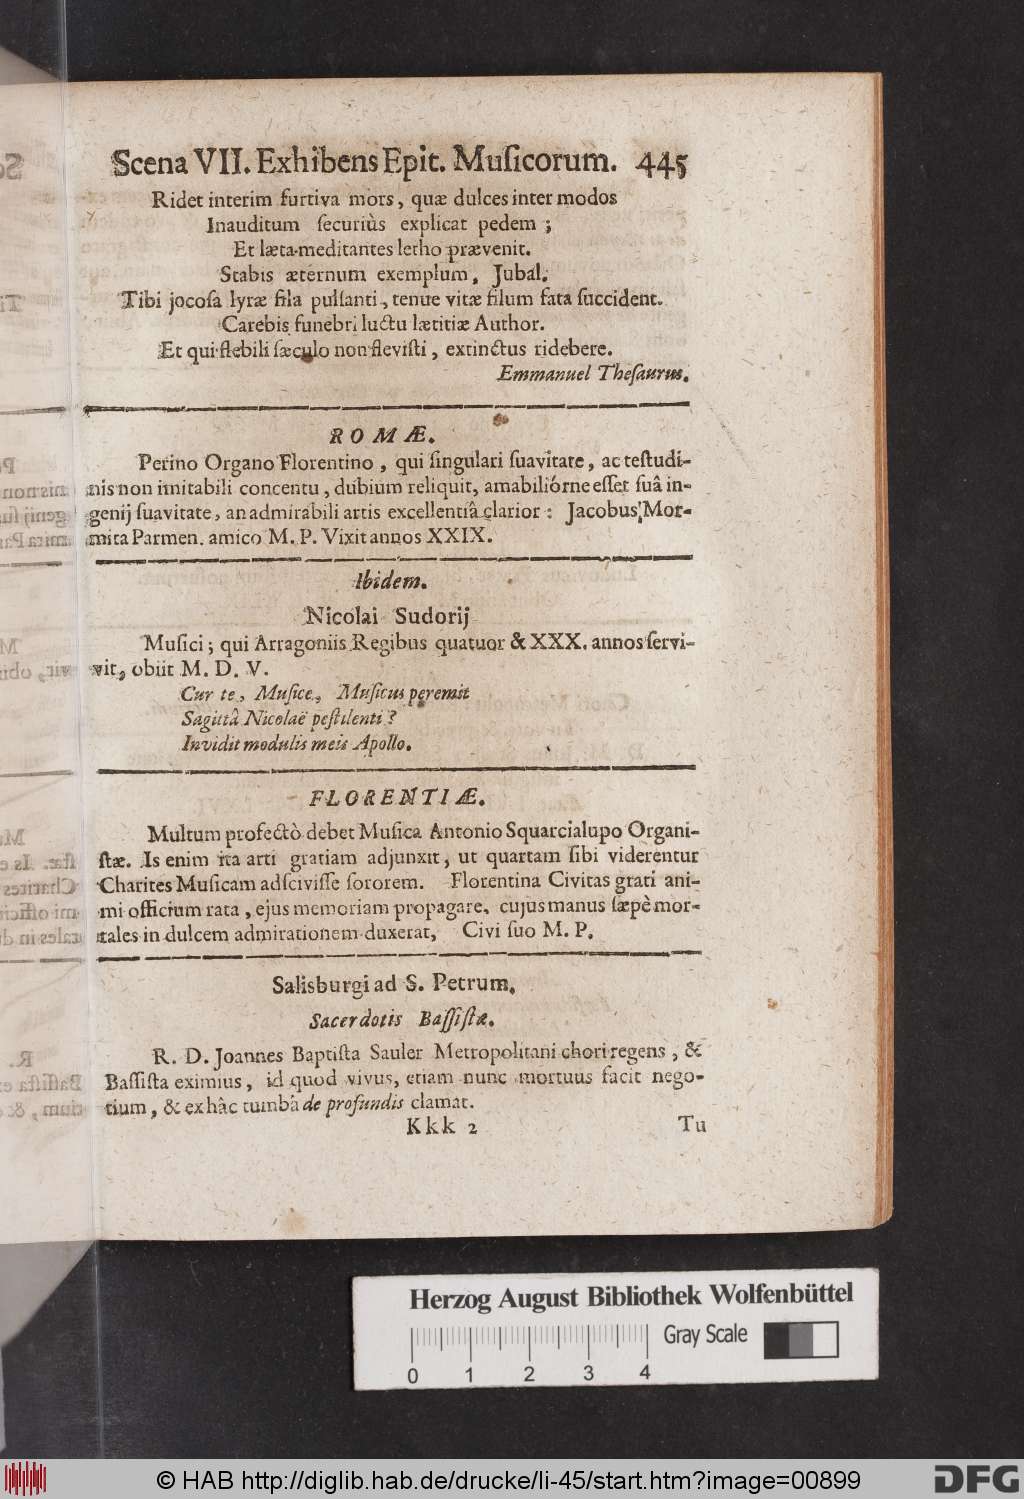 Scena VII. Exhibens Epit. Muſicorum. 445
Ridet interim furtiva mors, quæ dulces inter modos
Inauditum ſecuriùs explicat pedem;
Et læta meditantes letho prævenit.
Stabis æternum exemplum, Jubal.
Tibi jocoſa lyræ fila pulſanti, tenue vitæ filum fata ſuccident.
Carebis funebri luctu lætitiæ Author.
Et qui flebili ſæculo non fleviſti, extinctus ridebere.
Emmanuel Theſaurus.
ROMÆ.
Perino Organo Florentino, qui ſingulari ſuavitate, ac teſtudi-
nis non imitabili concentu, dubium reliquit, amabiliórne eſſet ſuâ in-
genij ſuavitate, an admirabili artis excellentiâ clarior: Jacobus Mor-
mita Parmen. amico M. P. Vixit annos XXIX.
Ibidem.
Nicolai Sudorij
Muſici; qui Arragoniis Regibus quatuor & XXX. annos ſervi-
vit, obiit M. D. V.
Cur te, Muſice, Muſicus peremit
Sagittâ Nicolaë peſtilenti?
Invidit modulis meis Apollo.
FLORENTIÆ.
Multum profectò debet Muſica Antonio Squarcialupo Organi-
ſtæ. Is enim ita arti gratiam adjunxit, ut quartam ſibi viderentur
Charites Muſicam adſciviſſe ſororem. Florentina Civitas grati ani-
mi officium rata, ejus memoriam propagare, cujus manus ſæpè mor-
tales in dulcem admirationem duxerat, Civi ſuo M. P.
Salisburgi ad S. Petrum.
Sacerdotis Baſſiſtæ.
R. D. Joannes Baptiſta Sauler Metropolitani chori regens, &
Baſſiſta eximius, id quod vivus, etiam nunc mortuus facit nego-
tium, & ex hâc tumbâ de profundis clamat.
Kkk 2 Tu
Herzog August Bibliothek Wolfenbüttel
Gray Scale
0 1 2 3 4
© HAB http://diglib.hab.de/drucke/li-45/start.htm?image=00899
DFG